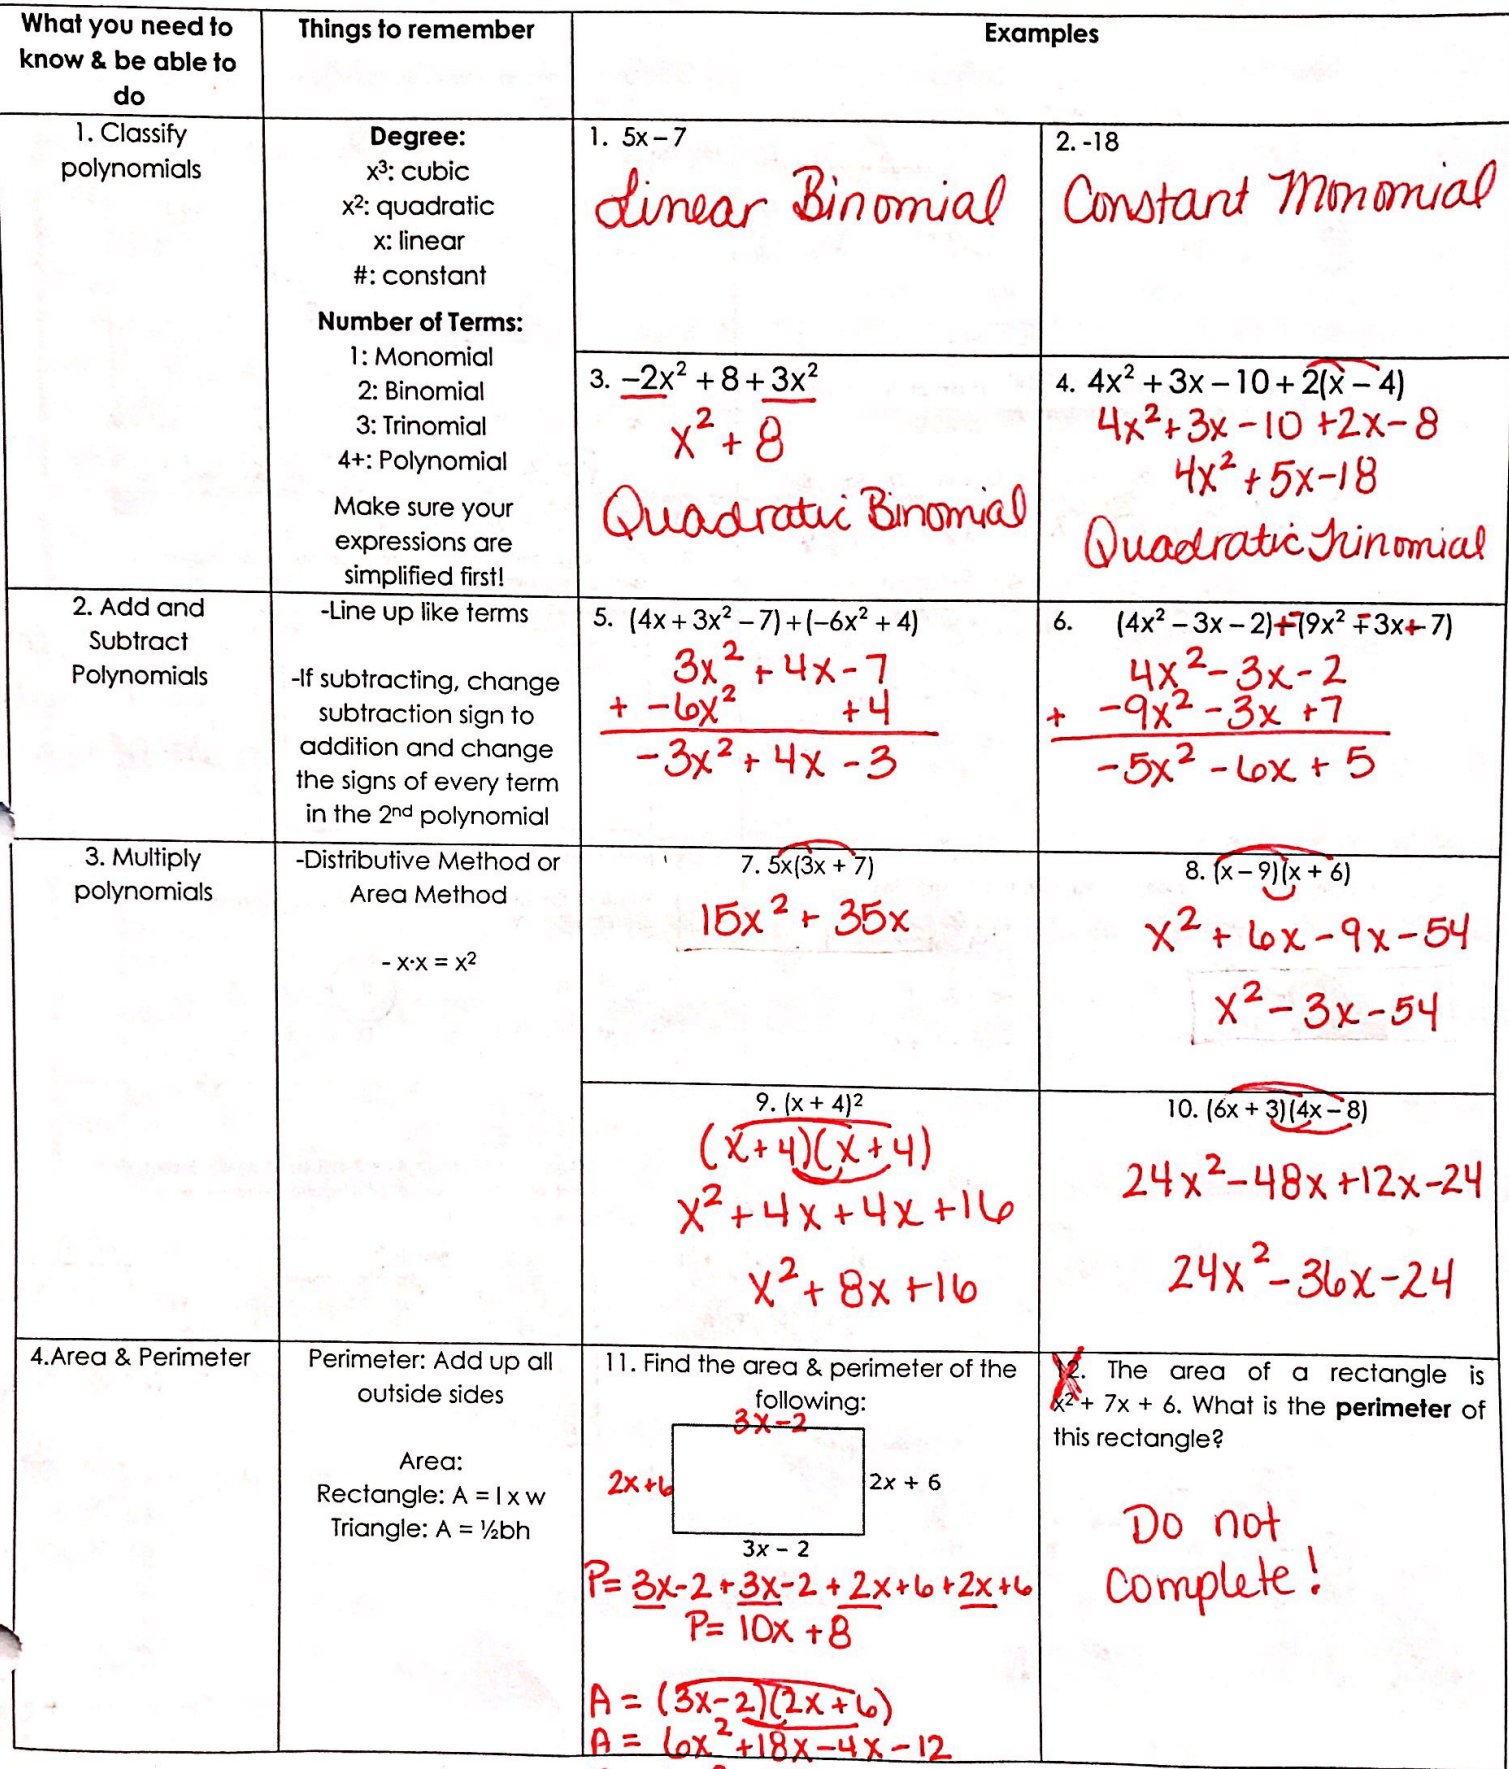 What you need to
know & be able to
do
Things to remember
Examples
1. Classify
polynomials
Degree:
x³: cubic
x²: quadratic
x: linear
#: constant
Number of Terms:
1: Monomial
2: Binomial
3: Trinomial
4+: Polynomial
Make sure your
expressions are
simplified first!
1. 5x – 7
Linear Binomial
2. -18
Constant Monomial
3. –2x² + 8 + 3x²
x² + 8
Quadratic Binomial
4. 4x² + 3x – 10 + 2(x – 4)
4x² + 3x – 10 + 2x – 8
4x² + 5x – 18
Quadratic Trinomial
2. Add and
Subtract
Polynomials
-Line up like terms
-If subtracting, change
subtraction sign to
addition and change
the signs of every term
in the 2nd polynomial
5. (4x + 3x² – 7) + (–6x² + 4)
3x² + 4x – 7
+ –6x² + 4
–3x² + 4x – 3
6. (4x² – 3x – 2) + –(9x² – 3x + 7)
4x² – 3x – 2
+ –9x² – 3x + 7
–5x² – 6x + 5
3. Multiply
polynomials
-Distributive Method or
Area Method
- x·x = x²
7. 5x(3x + 7)
15x² + 35x
8. (x – 9)(x + 6)
x² + 6x – 9x – 54
x² – 3x – 54
9. (x + 4)²
(x + 4)(x + 4)
x² + 4x + 4x + 16
x² + 8x + 16
10. (6x + 3)(4x – 8)
24x² – 48x + 12x – 24
24x² – 36x – 24
4.Area & Perimeter
Perimeter: Add up all
outside sides
Area:
Rectangle: A = l x w
Triangle: A = ½bh
11. Find the area & perimeter of the
following:
3x – 2
2x + 6
2x + 6
3x – 2
P = 3x – 2 + 3x – 2 + 2x + 6 + 2x + 6
P = 10x + 8
A = (3x – 2)(2x + 6)
A = 6x² + 18x – 4x – 12
12. The area of a rectangle is
x² + 7x + 6. What is the perimeter of
this rectangle?
Do not
complete!